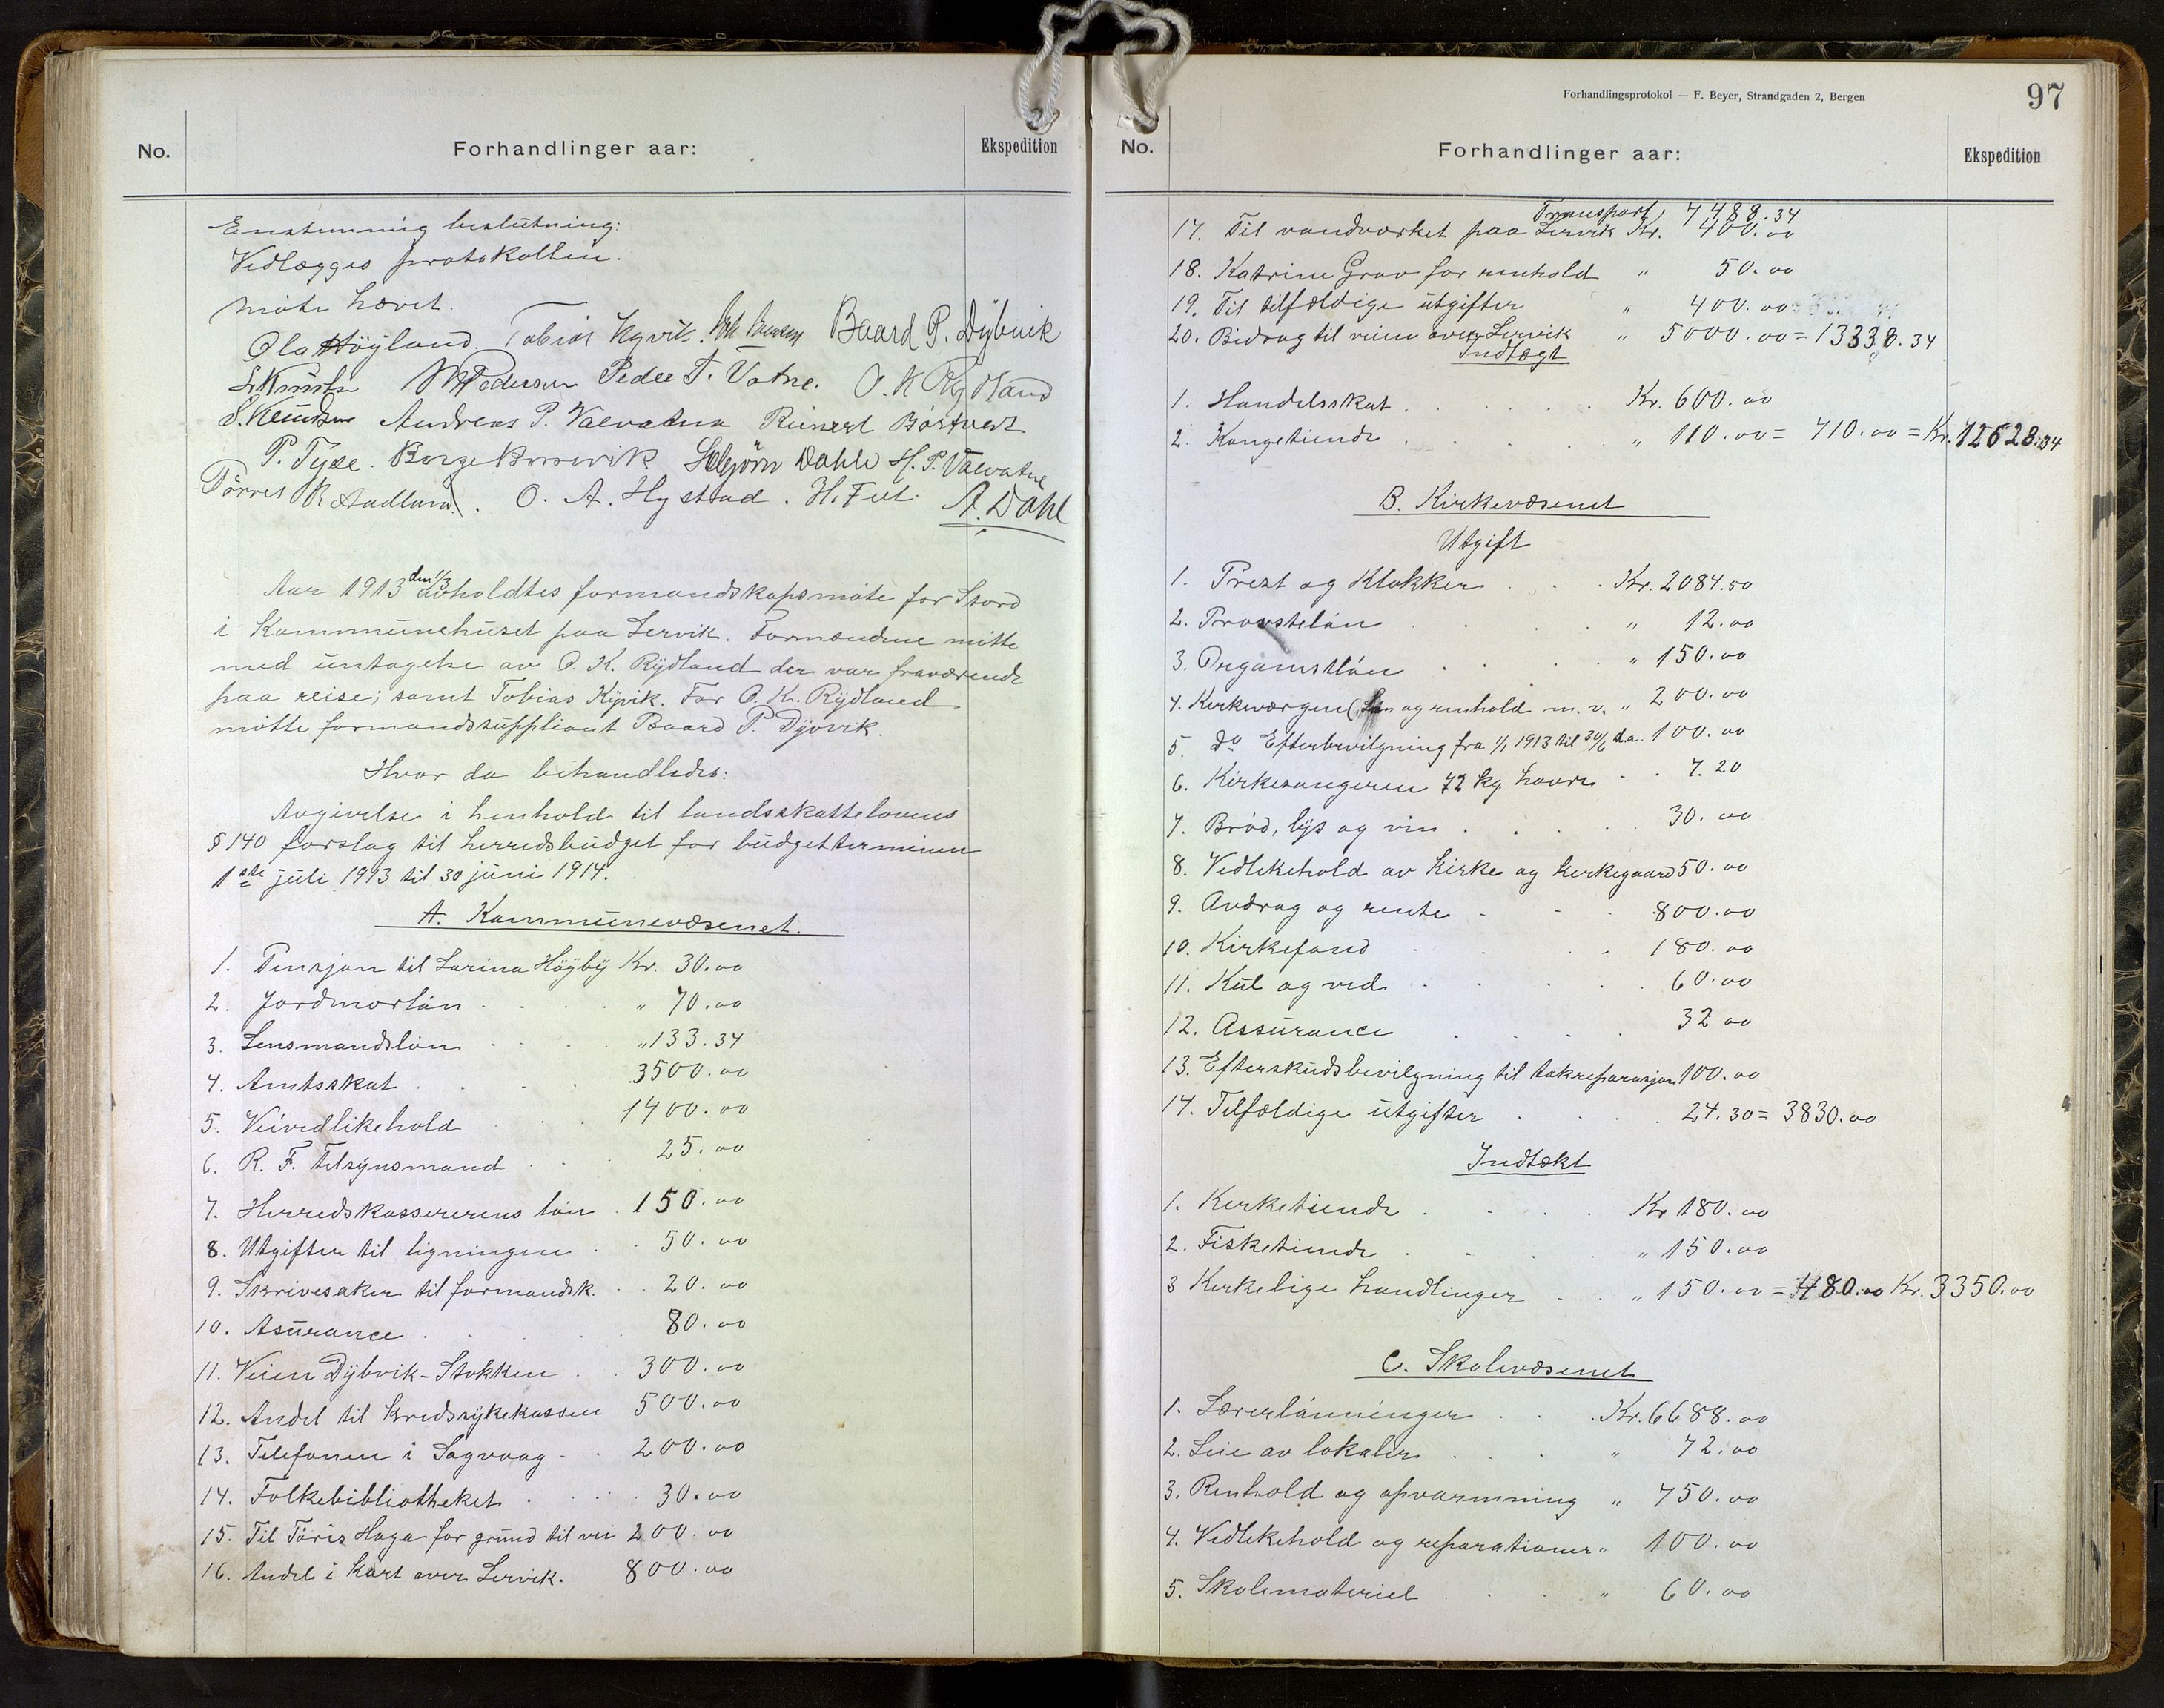 No.
Forhandlinger aar:
Ekspedition
Enstemmig beslutning:
Vedlægges protokollen.
Møte hævet.
Ola Höyland. Tobias Kyvik. Baard P. Dybvik
Pedersen Peder T. Vatne. O. K Rydland
Andreas P. Valvatna Reinert Börtveit
P. Tyse. Børge Asbjörn Dahle H. P. Valvatne
Törres R Aadland. O. A. Hystad. H. A. Dahl
Aar 1913 den 1/3 avholdtes formandskapsmöte for Stord
i Kommunehuset paa Lervik. Formændene mötte
med untagelse av O. K. Rydland der var fraværende
paa reise; samt Tobias Kyvik. For O. K. Rydland
mötte formandssuppliant Baard P. Dyvik.
Hvor da behandledes:
Avgivelse i henhold til landsskattelovens
§ 140 forslag til herredsbudget for budgetterminen
1ste juli 1913 til 30 juni 1914.
A. Kommunevæsenet.
1. Pensjon til Larina Höyby Kr. 30.00
2. Jordmorlön " 70.00
3. Lensmandslön " 133.34
4. Amtsskat 3500.00
5. Veivedlikehold 1400.00
6. R. F. Tilsynsmand 25.00
7. Herredskassererens lön 150.00
8. Utgifter til ligningen 50.00
9. Skrivesaker til formandsk. 20.00
10. Asurance 80.00
11. Veien Dybvik - Stokken 300.00
12. Andel til Kredssykekassen 500.00
13. Telefonen i Sagvaag 200.00
14. Folkebibliotheket 30.00
15. Til Töris Haga for grund til vei 200.00
16. Andel i Kart over Lervik. 800.00
Forhandlingsprotokol — F. Beyer, Strandgaden 2, Bergen
97
No.
Forhandlinger aar:
Ekspedition
Transport 7488.34
17. Til vandværket paa Lervik Kr. 400.00
18. Katrine Grov for renhold " 50.00
19. Til tilfældige utgifter " 400.00
20. Bidrag til veien over Lervik " 5000.00 = 13338.34
Indtægt
1. Handelsskat Kr. 600.00
2. Kongetiende " 110.00 = 710.00 = Kr. 12628.34
B. Kirkevæsenet
Utgift
1. Prest og Klokker Kr. 2084.50
2. Provstelön " 12.00
3. Organistlön " 150.00
4. Kirkeværgen (Lön og renhold m. v. " 200.00
5. Do Efterbevilgning fra 1/1 1913 til 30/6 d.a. 100.00
6. Kirkesangeren 72 kg havre 7.20
7. Bröd, lys og vin 30.00
8. Vedlikehold av kirke og kirkegaard 50.00
9. Avdrag og rente 800.00
10. Kirkefond 180.00
11. Kul og ved 60.00
12. Assurance 32 00
13. Efterskudsbevilgning til takreparasjon 100.00
14. Tilfældige utgifter 24.30 = 3830.00
Indtækt
1. Kirketiende Kr 180.00
2. Fisketiende " 150.00
3 Kirkelige handlinger " 150.00 = 480.00 Kr. 3350.00
C. Skolevæsenet
1. Lærerlönninger Kr. 6688.00
2. Leie av lokaler " 72.00
3. Renhold og opvarmning " 750.00
4. Vedlikehold og reparationer " 100.00
5. Skolemateriel " 60.00